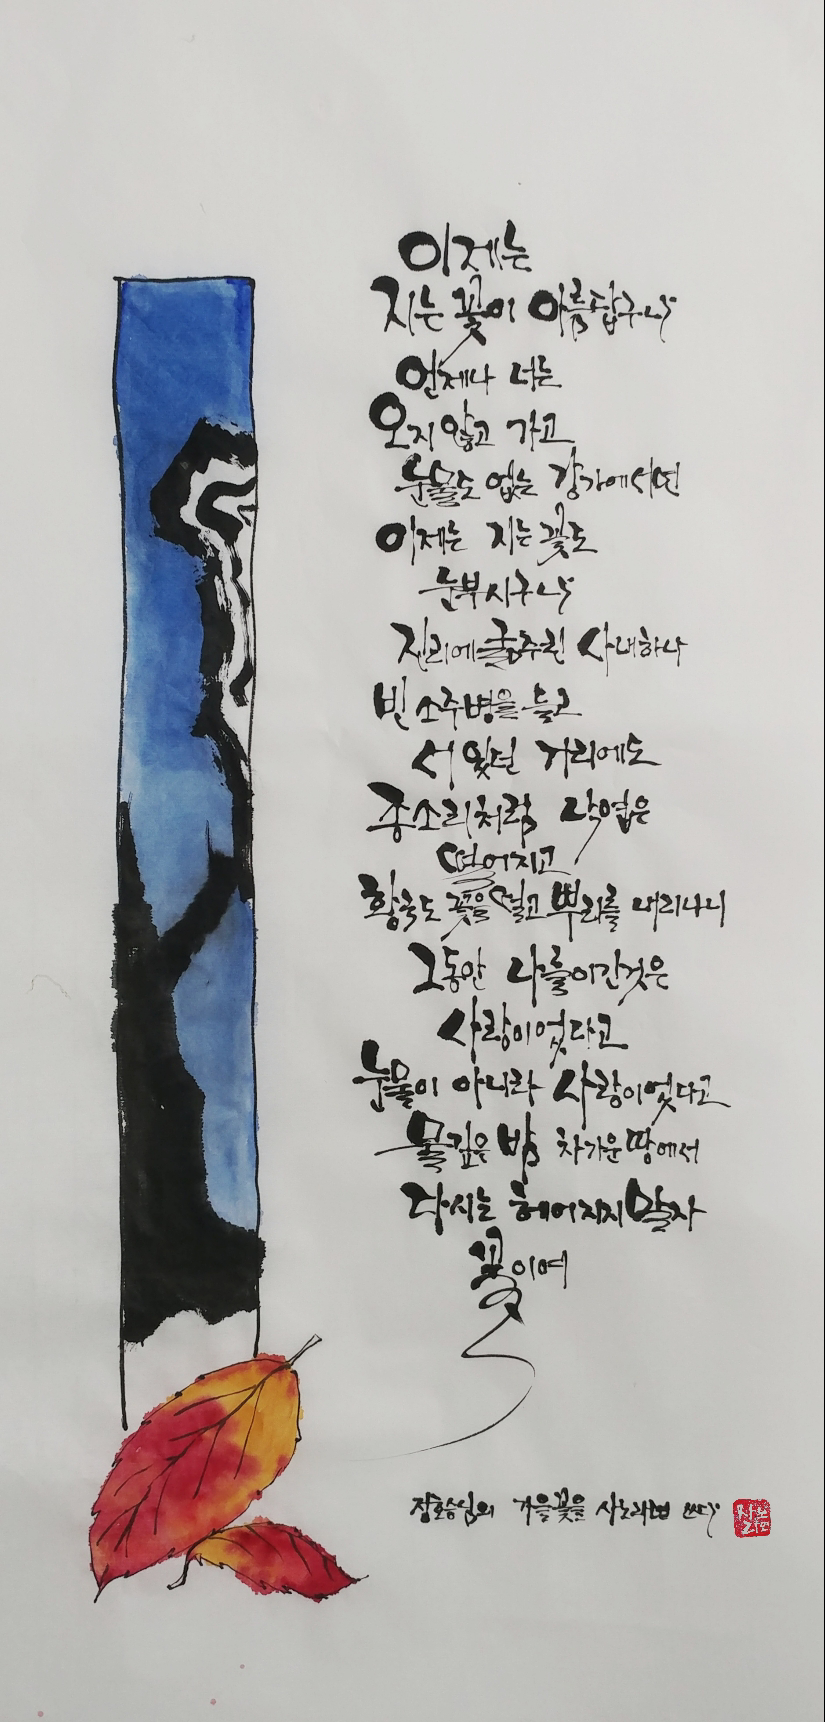 이제는
지는 꽃이 아름답구나
언제나 너는
오지 않고 가고
눈물도 없는 강가에 서면
이제는 지는 꽃도
눈부시구나
진리에 굶주린 사내 하나
빈 소주병을 들고
서 있던 거리에도
종소리처럼 낙엽은
떨어지고
황국도 꽃을 떨고 뿌리를 내리나니
그동안 나를 이긴 것은
사랑이었다고
눈물이 아니라 사랑이었다고
물 깊은 밤 차가운 땅에서
다시는 헤어지지 말자
꽃이여
정호승님의 가을꽃을 사노라면 쓰다
사노라면